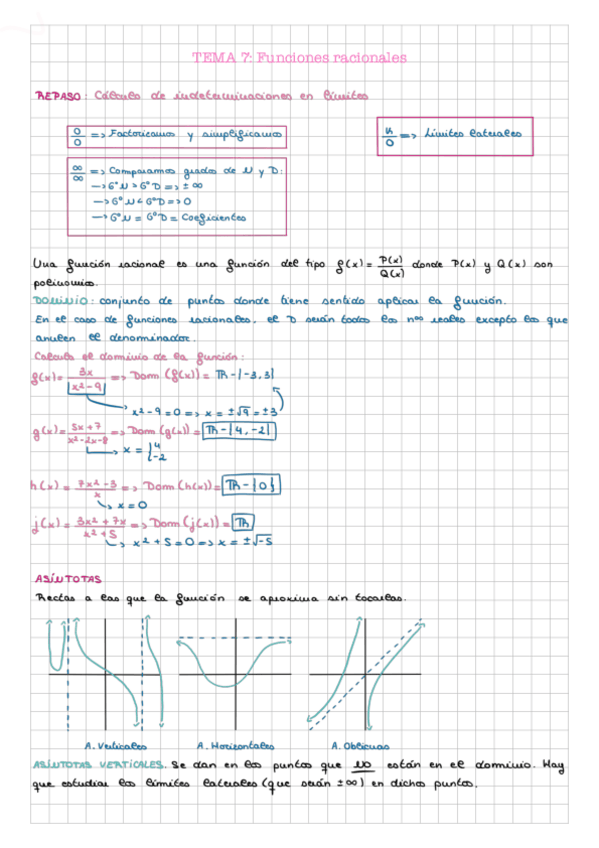 TEMA 7: Funciones racionales
REPASO: Cálculo de indeterminaciones en límites
0/0 => Factorizamos y simplificamos
K/0 => Límites laterales
∞/∞ => Comparamos grados de N y D:
→ Gº N > Gº D => ± ∞
→ Gº N < Gº D => 0
→ Gº N = Gº D = Coeficientes
Una función racional es una función del tipo f(x) = P(x)/Q(x) donde P(x) y Q(x) son
polinomios.
DOMINIO: conjunto de puntos donde tiene sentido aplicar la función.
En el caso de funciones racionales, el D serán todos los nos reales excepto los que
anulen el denominador.
Calcula el dominio de la función:
f(x) = 3x/|x²-9| => Dom (f(x)) = ℝ-{-3,3}
x²-9=0 => x = ±√9 = ±3
g(x) = 5x+7/x²-2x-8 => Dom (g(x)) = ℝ-{4,-2}
x = {4 -2
h(x) = 7x²-3/x => Dom (h(x)) = ℝ-{0}
x=0
j(x) = 3x²+7x/x²+5 => Dom (j(x)) = ℝ
x²+5=0 => x = ±√-5
ASÍNTOTAS
Rectas a las que la función se aproxima sin tocarlas.
A. Verticales A. Horizontales A. Oblicuas
ASÍNTOTAS VERTICALES. Se dan en los puntos que no están en el dominio. Hay
que estudiar los límites laterales (que serán ±∞) en dichos puntos.